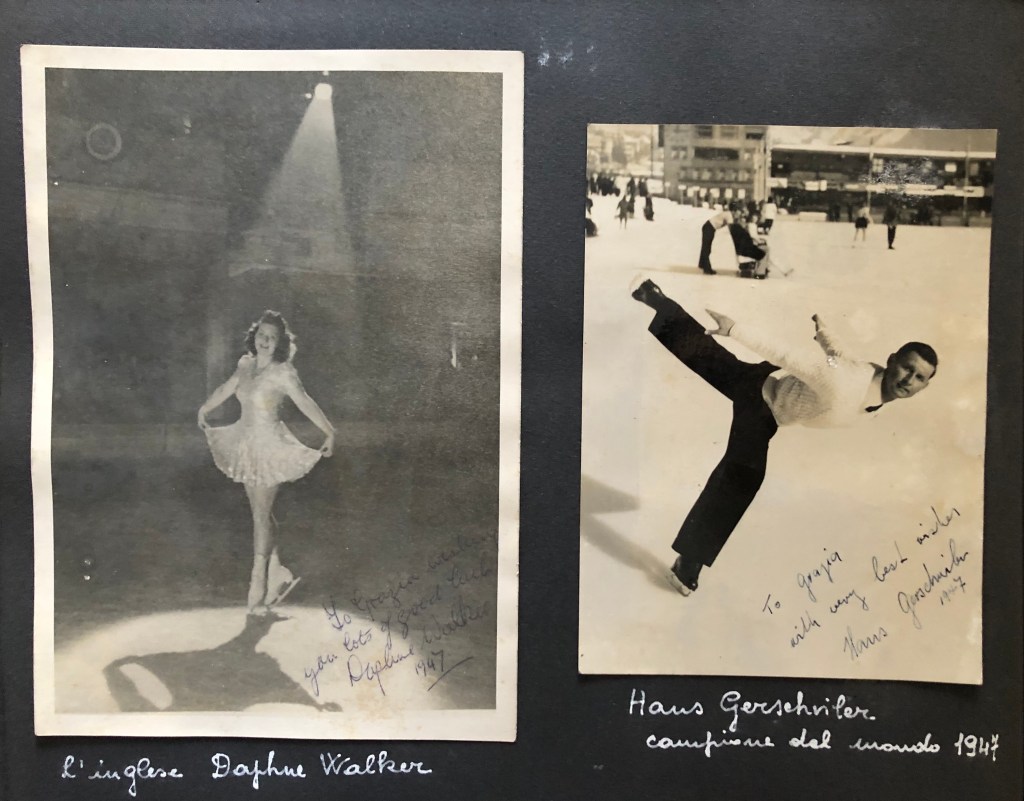 To Grazia wishing
you lots of good luck
Daphne Walker
1947
L'inglese Daphne Walker
To Grazia
with very best wishes
Hans Gerschwiler
1947
Hans Gerschviler
campione del mondo 1947